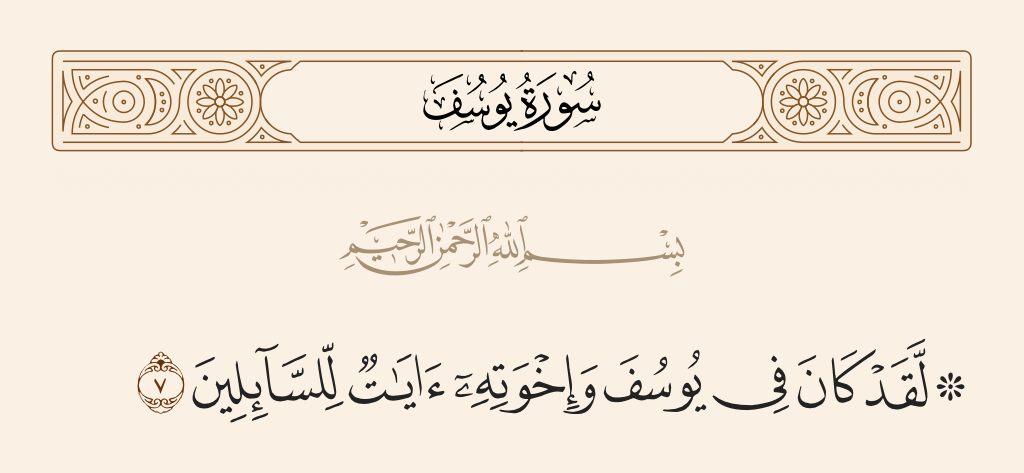 سُورَةُ يُوسُفَ
بِسْمِ ٱللَّهِ ٱلرَّحْمَٰنِ ٱلرَّحِيمِ
۞ لَّقَدْ كَانَ فِى يُوسُفَ وَإِخْوَتِهِۦٓ ءَايَـٰتٌ لِّلسَّآئِلِينَ ٧